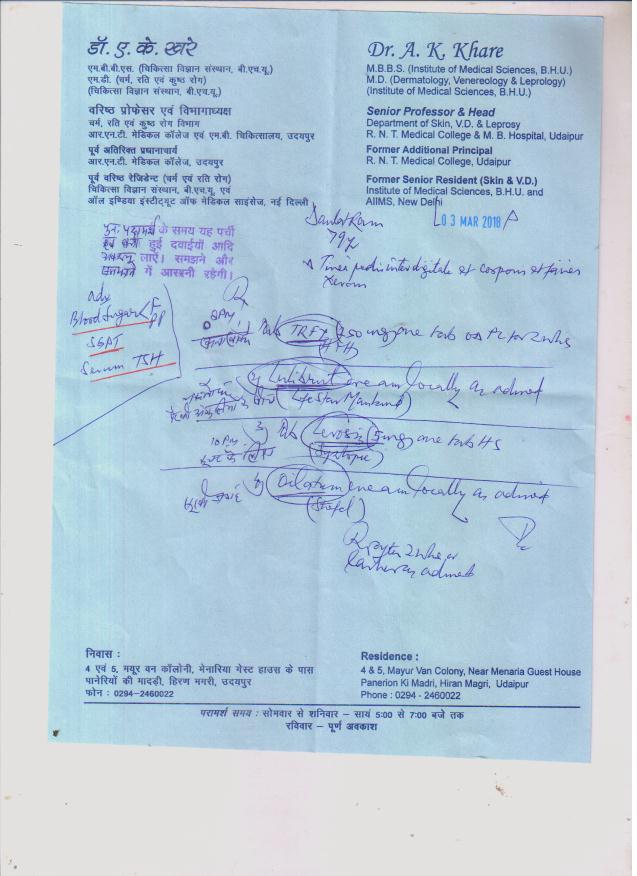 डॉ. ए. के. खरे
एम.बी.बी.एस. (चिकित्सा विज्ञान संस्थान, बी.एच.यू.)
एम.डी. (चर्म, रति एवं कुष्ठ रोग)
(चिकित्सा विज्ञान संस्थान, बी.एच.यू.)
वरिष्ठ प्रोफेसर एवं विभागाध्यक्ष
चर्म, रति एवं कुष्ठ रोग विभाग
आर.एन.टी. मेडिकल कॉलेज एवं एम.बी. चिकित्सालय, उदयपुर
पूर्व अतिरिक्त प्रधानाचार्य
आर.एन.टी. मेडिकल कॉलेज, उदयपुर
पूर्व वरिष्ठ रेजिडेन्ट (चर्म एवं रति रोग)
चिकित्सा विज्ञान संस्थान, बी.एच.यू. एवं
ऑल इण्डिया इंस्टीट्यूट ऑफ मेडिकल साइंसेज, नई दिल्ली
Dr. A. K. Khare
M.B.B.S. (Institute of Medical Sciences, B.H.U.)
M.D. (Dermatology, Venereology & Leprology)
(Institute of Medical Sciences, B.H.U.)
Senior Professor & Head
Department of Skin, V.D. & Leprosy
R. N. T. Medical College & M. B. Hospital, Udaipur
Former Additional Principal
R. N. T. Medical College, Udaipur
Former Senior Resident (Skin & V.D.)
Institute of Medical Sciences, B.H.U. and
AIIMS, New Delhi
03 MAR 2018
के समय यह पर्ची
हुई दवाईयाँ आदि
लाएँ। समझने और
में आसानी रहेगी।
79y
Tinea pedis interdigitale et corporis et
Adv
Blood Sugar F PP
SGPT
Serum TSH
Rx
8PM
1) Tab 250 mg one tab for 2 whs
2) Lulibrut cream locally as advised
(LifeStar Mankind)
10 PM
3) Tab 5mg one tab HS
दूध के लिए
4) Oilatum cream locally as advised
(Stiefel)
R after 2 whs or
earlier as advised
निवास :
4 एवं 5, मयूर वन कॉलोनी, मेनारिया गेस्ट हाउस के पास
पानेरियों की मादड़ी, हिरण मगरी, उदयपुर
फोन : 0294-2460022
Residence :
4 & 5, Mayur Van Colony, Near Menaria Guest House
Panerion Ki Madri, Hiran Magri, Udaipur
Phone : 0294 - 2460022
परामर्श समय : सोमवार से शनिवार – सायं 5:00 से 7:00 बजे तक
रविवार – पूर्ण अवकाश